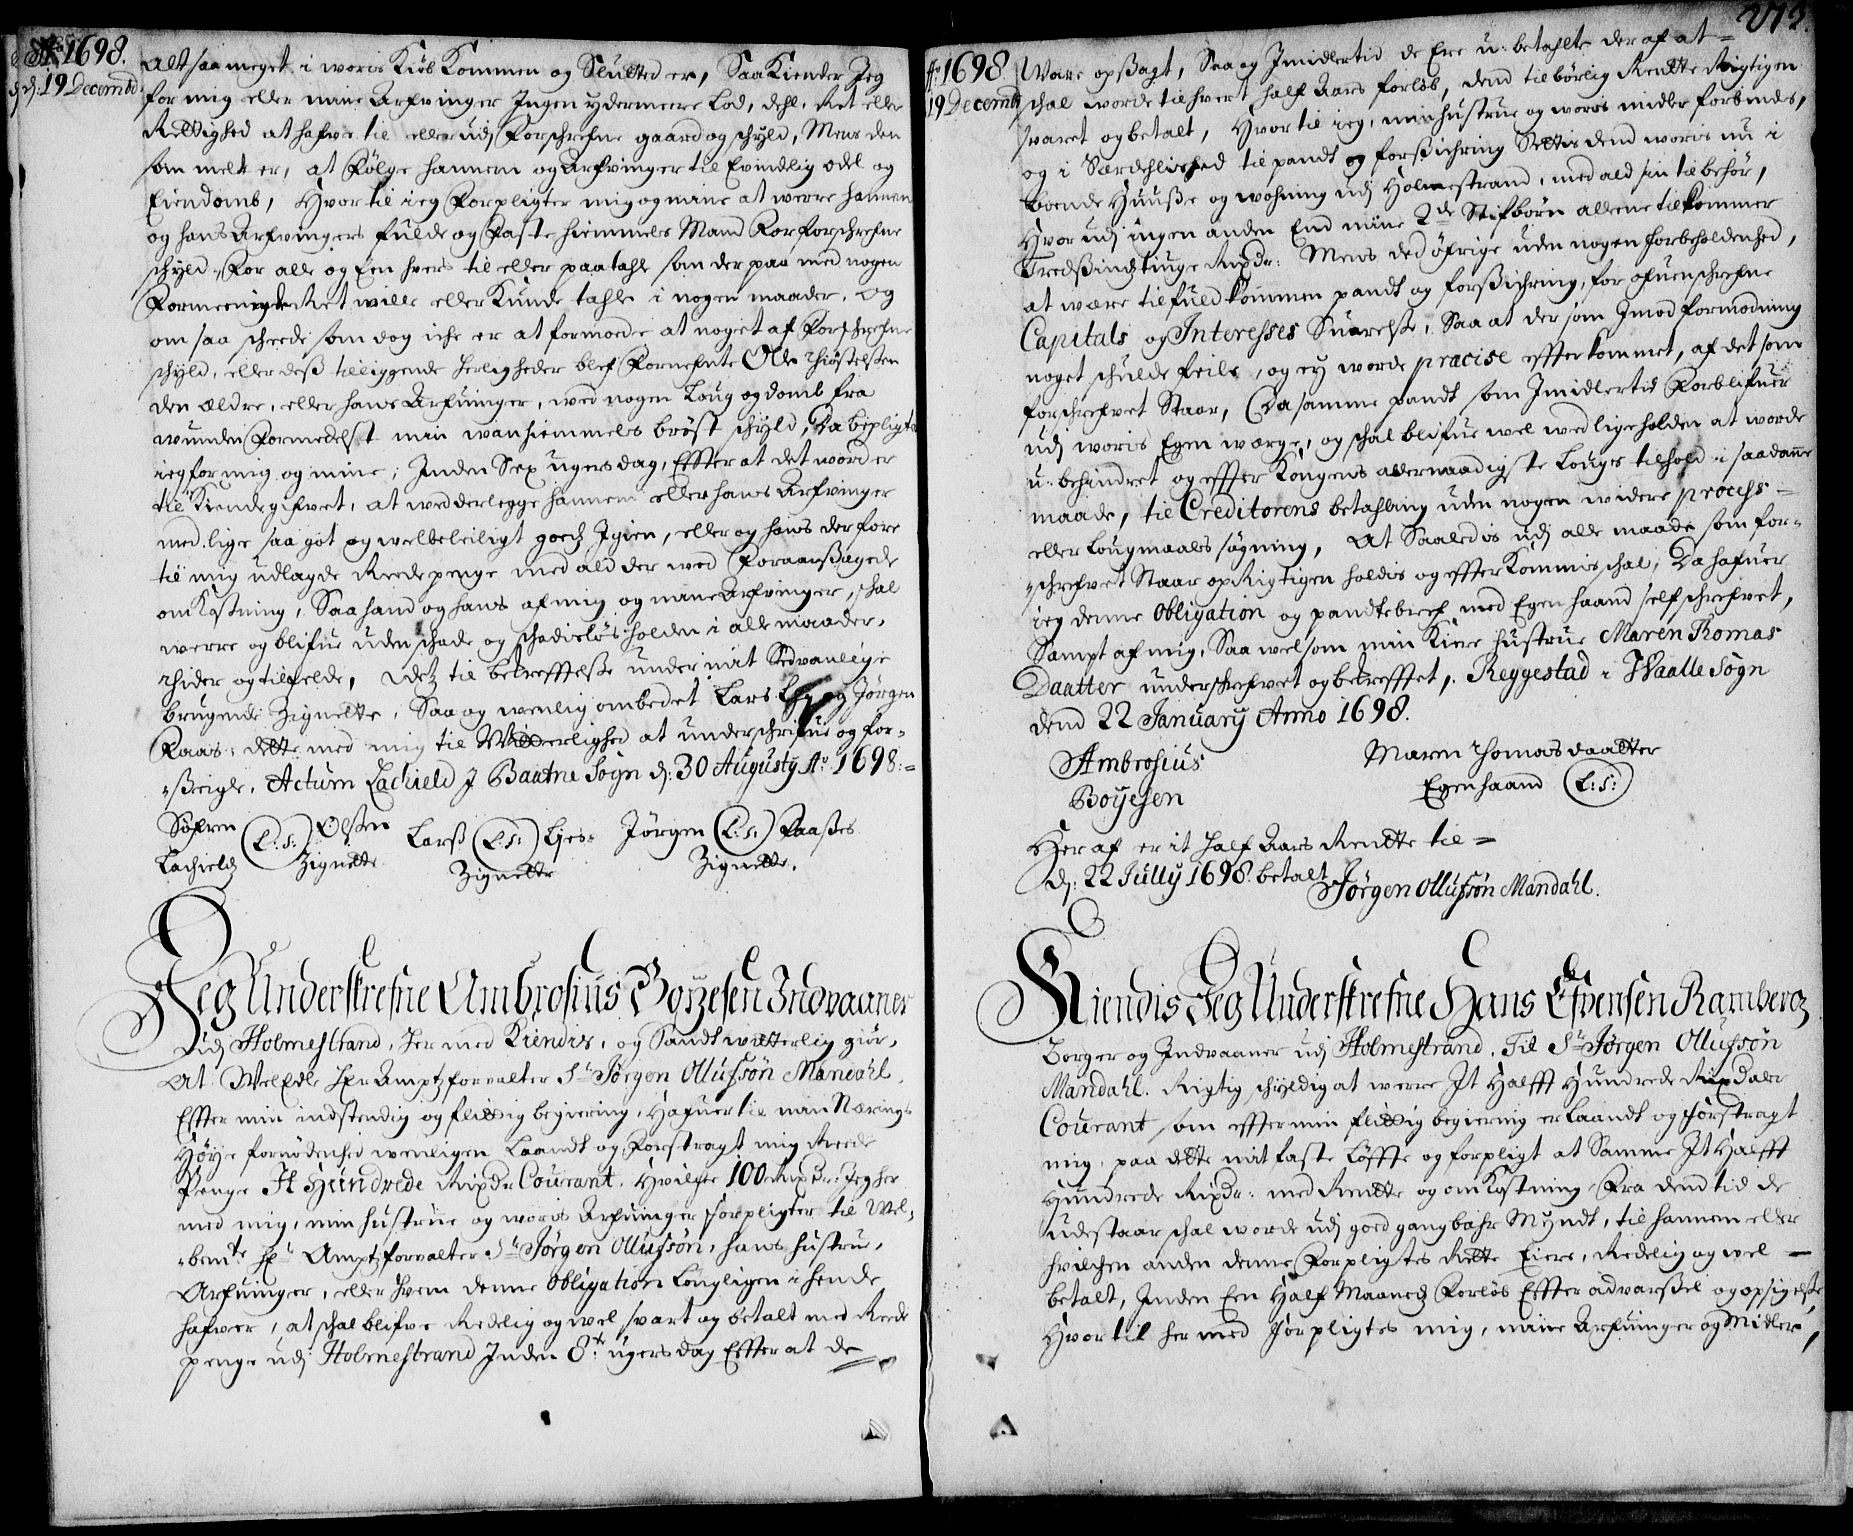 Aō 1698.
d: 19 Decembr
Alt saa meget i woris Kiøb Kommen og Slutted er, Saa Kiender Jeg
for mig eller mine Arfvinger Ingen ydermeere Lod, dehl, Ret eller
Rettighed at hafve til eller udj Forschrefne gaard og schyld, Mens den
som melt er, at Følge hannem og Arfvinger til Evindelig odel og
Eiendomb, Hvor til ieg Forpligter mig og mine at werre hannem
og hans Arfvingers fulde og Faste hiemmels Mand For forschrefne
schyld, For alle og Een hvers til eller paatahle som der paa med nogen
Formeenende Ret wille eller Kunde tahle i nogen maader, og
om saa scheede som dog iche er at formoede at noget af Forschrefne
schyld, eller deß tilliggende herligheder blef Fornefnte Ole Thiøstelßen
den ældre, eller hans Arfuinger, med nogen Loug og domb fra
wunden Formedelst min wanhiemmels brøst schyld, Da bepligter
ieg for mig og mine, Inden Sex ugers dag, Effter at det worder
til Kiende gifvet, at wedderlegge hannem eller hans Arfvinger
med lige saa got og welbeleiligt goedz Igien, eller og hans derfore
til mig udlagde Reede penge med ald der wed Foraarßagede
omKostning, Saa hand og hans af mig og mine Arfvinger, schal
werre og blifue uden schade og schadisløs holden i alle maader,
thider og tilfelde, Detz til bekrefftelße under mit Sedvanlige
brugende Zignette, Saa og wenlig ombedet Lars Lie og Jørgen
Faas, dette med mig til Witterlighed at underschrifue og for-
ßeigle, Actum Lachield J Baatne Sogn d: 30 Augusty Aō 1698:=
Søfren (L:S:) Olßen Larß (L:S:) Lies= Jørgen (L:S:) Faaßes
Lachield Zignette Zignette Zignette.
Jeg Underskrefne Ambrosius Boyesen Indvaaner
Udj Holmestrand, her med Kiendis, og Sandt witterlig giør,
At WelEdle Hr Amptzforvalter Sr Jørgen Ollufsøn Mandahl,
Effter min indstendig og flittig begiering, Hafuer til min Nærings
Høye fornødenhed wenligen Laandt og Forstragt mig Reede
Penge It Hundrede Rixdr Courant, Hvilche 100 Rixdr: Jeg her
med mig, min hustrue og woris Arfuinger forpligter til Wel-
bemte Hr Amptzforvalter Sr Jørgen Ollufsøn, hans hustrue,
Arfuinger, eller hvem denne Obligation Lougligen i hende
hafver, at schal blifve Redelig og wel svart og betalt med Reede
penge udj Holmestrand Inden 8te ugers dag Effter at de
272.
Aō 1698
19 Decembr
Ware opßagt, Saa og Imidlertid de Ere u-betahlte der af at=
schal worde til hvert half Aars forløb, dend tilbørlig Rentte Rigtigen
svaret og betalt, Hvor til ieg, min hustrue og woris midler forbindes,
og i Særdehlished til pandt og forßichring Settis dend woris nu i
boende Huuße og wohning udj Holmestrand, med ald sin tilbehør,
Hvor udj ingen anden End mine 2de Stifbørn allene tilkommer
Tredßindztiuge Rixdr: Mens ded øfrige uden nogen forbeholdenhed,
at være til fuldkommen pandt og forßichring, for ofuenschrefne
Capitals og Interesses Suarelße, Saa at der som Imod formodning
noget schulde feile, og ey worde præcise effterkommet, af det som
forschrefvet Staar, Da samme pandt som Imidlertid Forblifuer
udj woris Egen wærge, og schal blifue wel wedligeholden at worde
u-behindret og effter Kongens allernaadigste Lougs tilhold i saadanne
maade, til Creditorens betahling uden nogen widere process=
eller Lougmaals søgning, At Saaledis udj alle maade som for-
schrefvet Staar opRigtigen holdis og effterkommis schal, Da hafuer
ieg denne Obligation og pandtebref med Egen haand self schrefvet,
Sampt af mig, Saa wel som min Kiere hustrue Maren Tomas
Daatter underschrefvet og bekrefftet, Reggestad i Waalle Sogn
dend 22 January Anno 1698.
Ambrosius Maren Thomas daatter
Boyesen Egen haand (L:S:)
Her af er it half Aars Rentte til=
d: 22 Jully 1698. betalt
Jørgen Ollufsøn Mandahl.
Kiendis Jeg Underskrefne Hans Espensen Ramberg
Borger og Indvaaner udj Holmestrand, Til Sr Jørgen Ollufsøn
Mandahl. Rigtig schyldig at werre It Halfft Hundrede Rixdaler
Courant som effter min flittig begiering er Laandt og forstragt
mig, paa dette mit faste Løffte og forpligt at Samme It Halfft
Hundrede Rixdr: med Rentte og omKostning Fra dend tid de
udestaar schal worde udj goed gangbahr Myndt, til hannem eller
hvilchen anden denne Forpligtes Rette Eiere, Redelig og wel -
betalt, Inden Een Half Maanedz Forløb Effter advarßel og opsigelße
Hvor til her med forpligtes mig, mine Arfuinger og Midler,